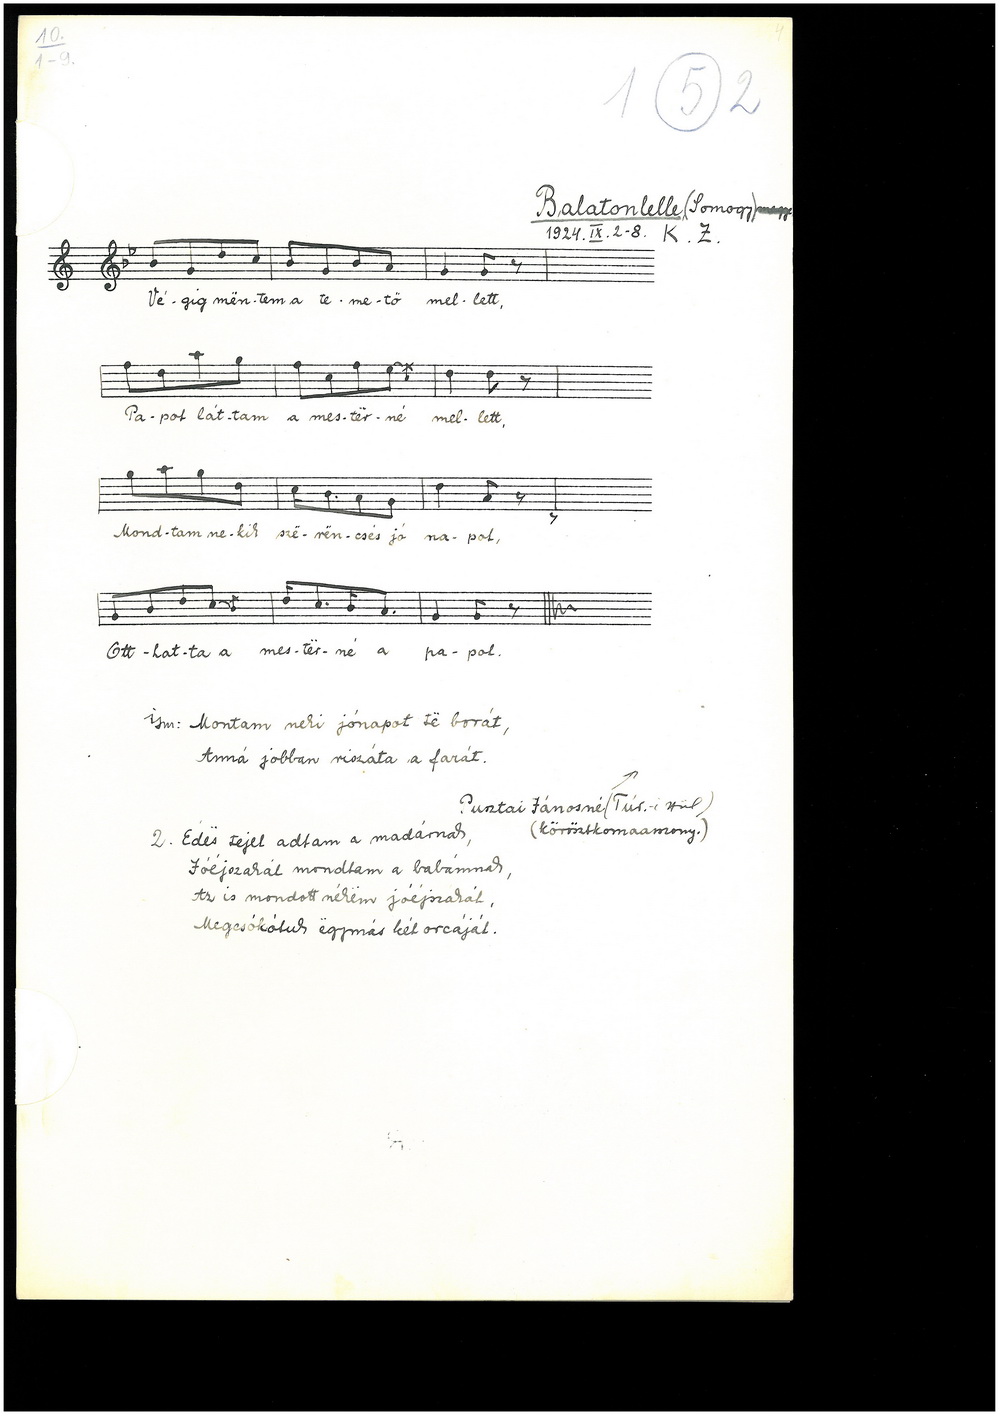 10.
1-9.
1 5 2
Balatonlelle (Somogy)
1924. IX. 2-8. K. Z.
Vé-gig mën-tem a te-me-tő mel-lett,
Pa-pot lát-tam a mes-tër-né mel-lett,
Mond-tam ne-kik szë-rën-csés jó na-pot,
Ott-hat-ta a mes-tër-né a pa-pot.
ism: Montam neki jónapot të borát,
Anná jobban riszáta a farát.
Pusztai Jánosné (Túr.-i szül)
(köröztkomaasszony.)
2. Edës tejet adtam a madárnak,
Jóéjszakát mondtam a babámnak,
Az is mondott nékëm jóéjszakát,
Megcsókótuk ëgymás két orcáját.